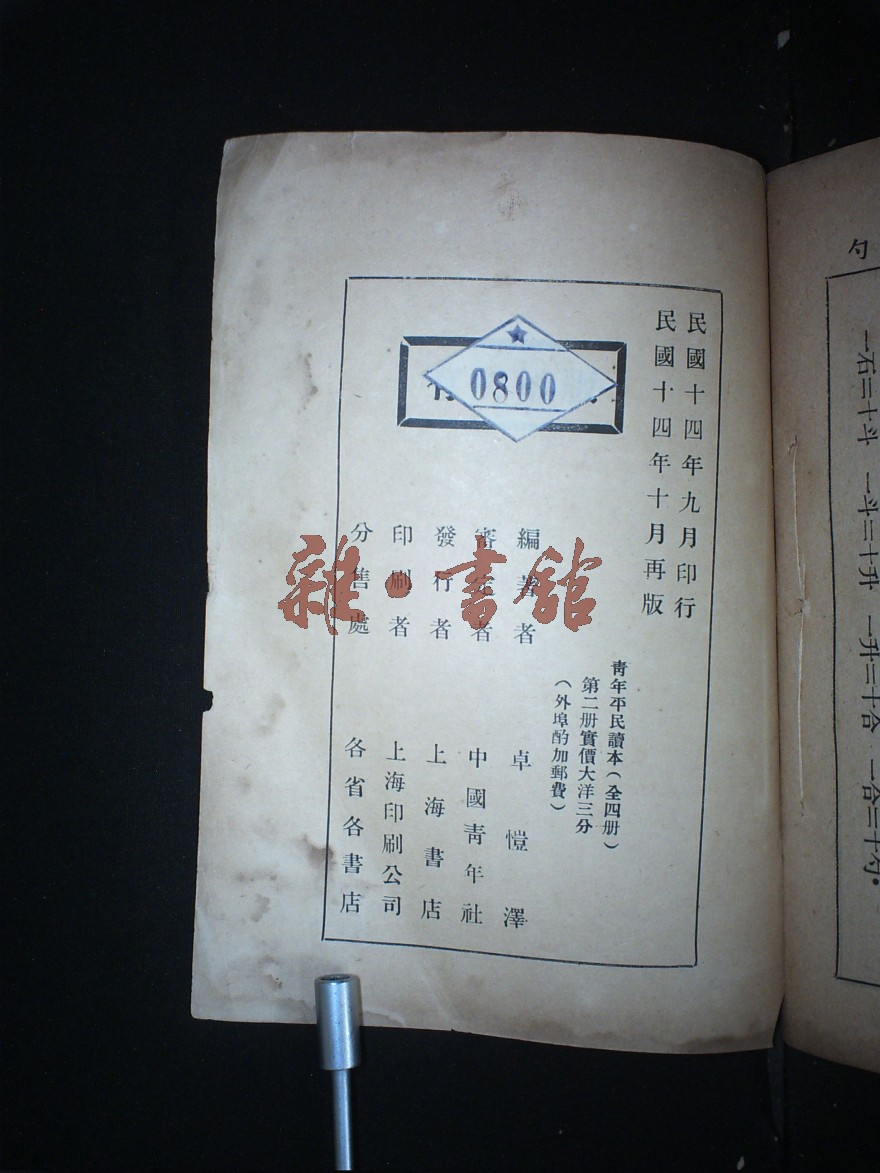 民國十四年九月印行
民國十四年十月再版
青年平民讀本(全四册)
第二册實價大洋三分
(外埠酌加郵費)
編著者 卓愷澤
審定者 中國青年社
發行者 上海書店
印刷者 上海印刷公司
分售處 各省各書店
0800
雜·書舘
勺
一石=十斗 一斗=十升 一升=十合 一合=十勺。